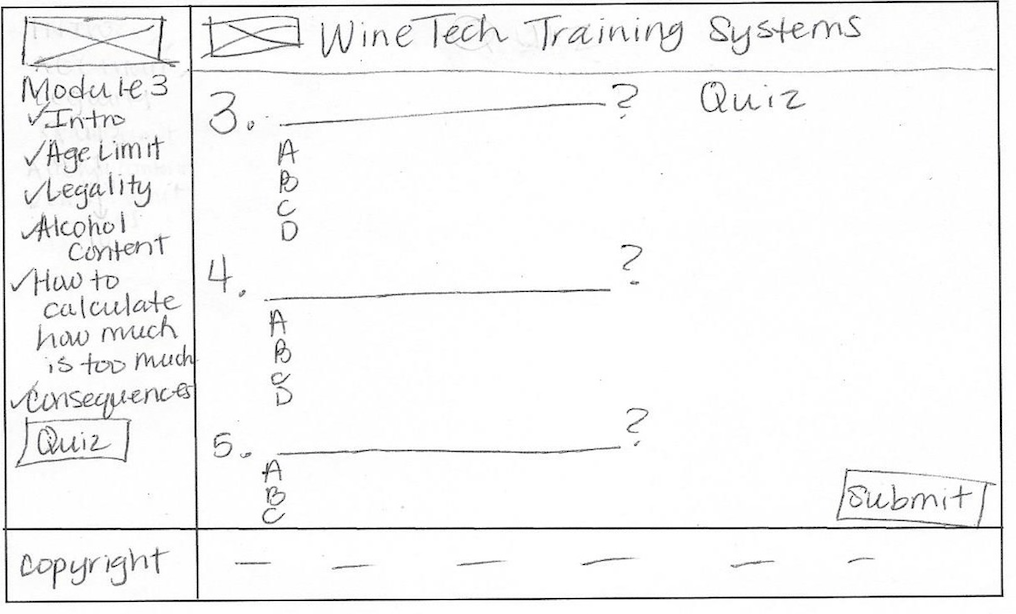 WineTech Training Systems
Module 3
✓Intro
✓Age Limit
✓Legality
✓Alcohol
Content
✓How to
calculate
how much
is too much
✓Consequences
Quiz
Quiz
3. ?
A
B
C
D
4. ?
A
B
C
D
5. ?
A
B
C
Submit
copyright